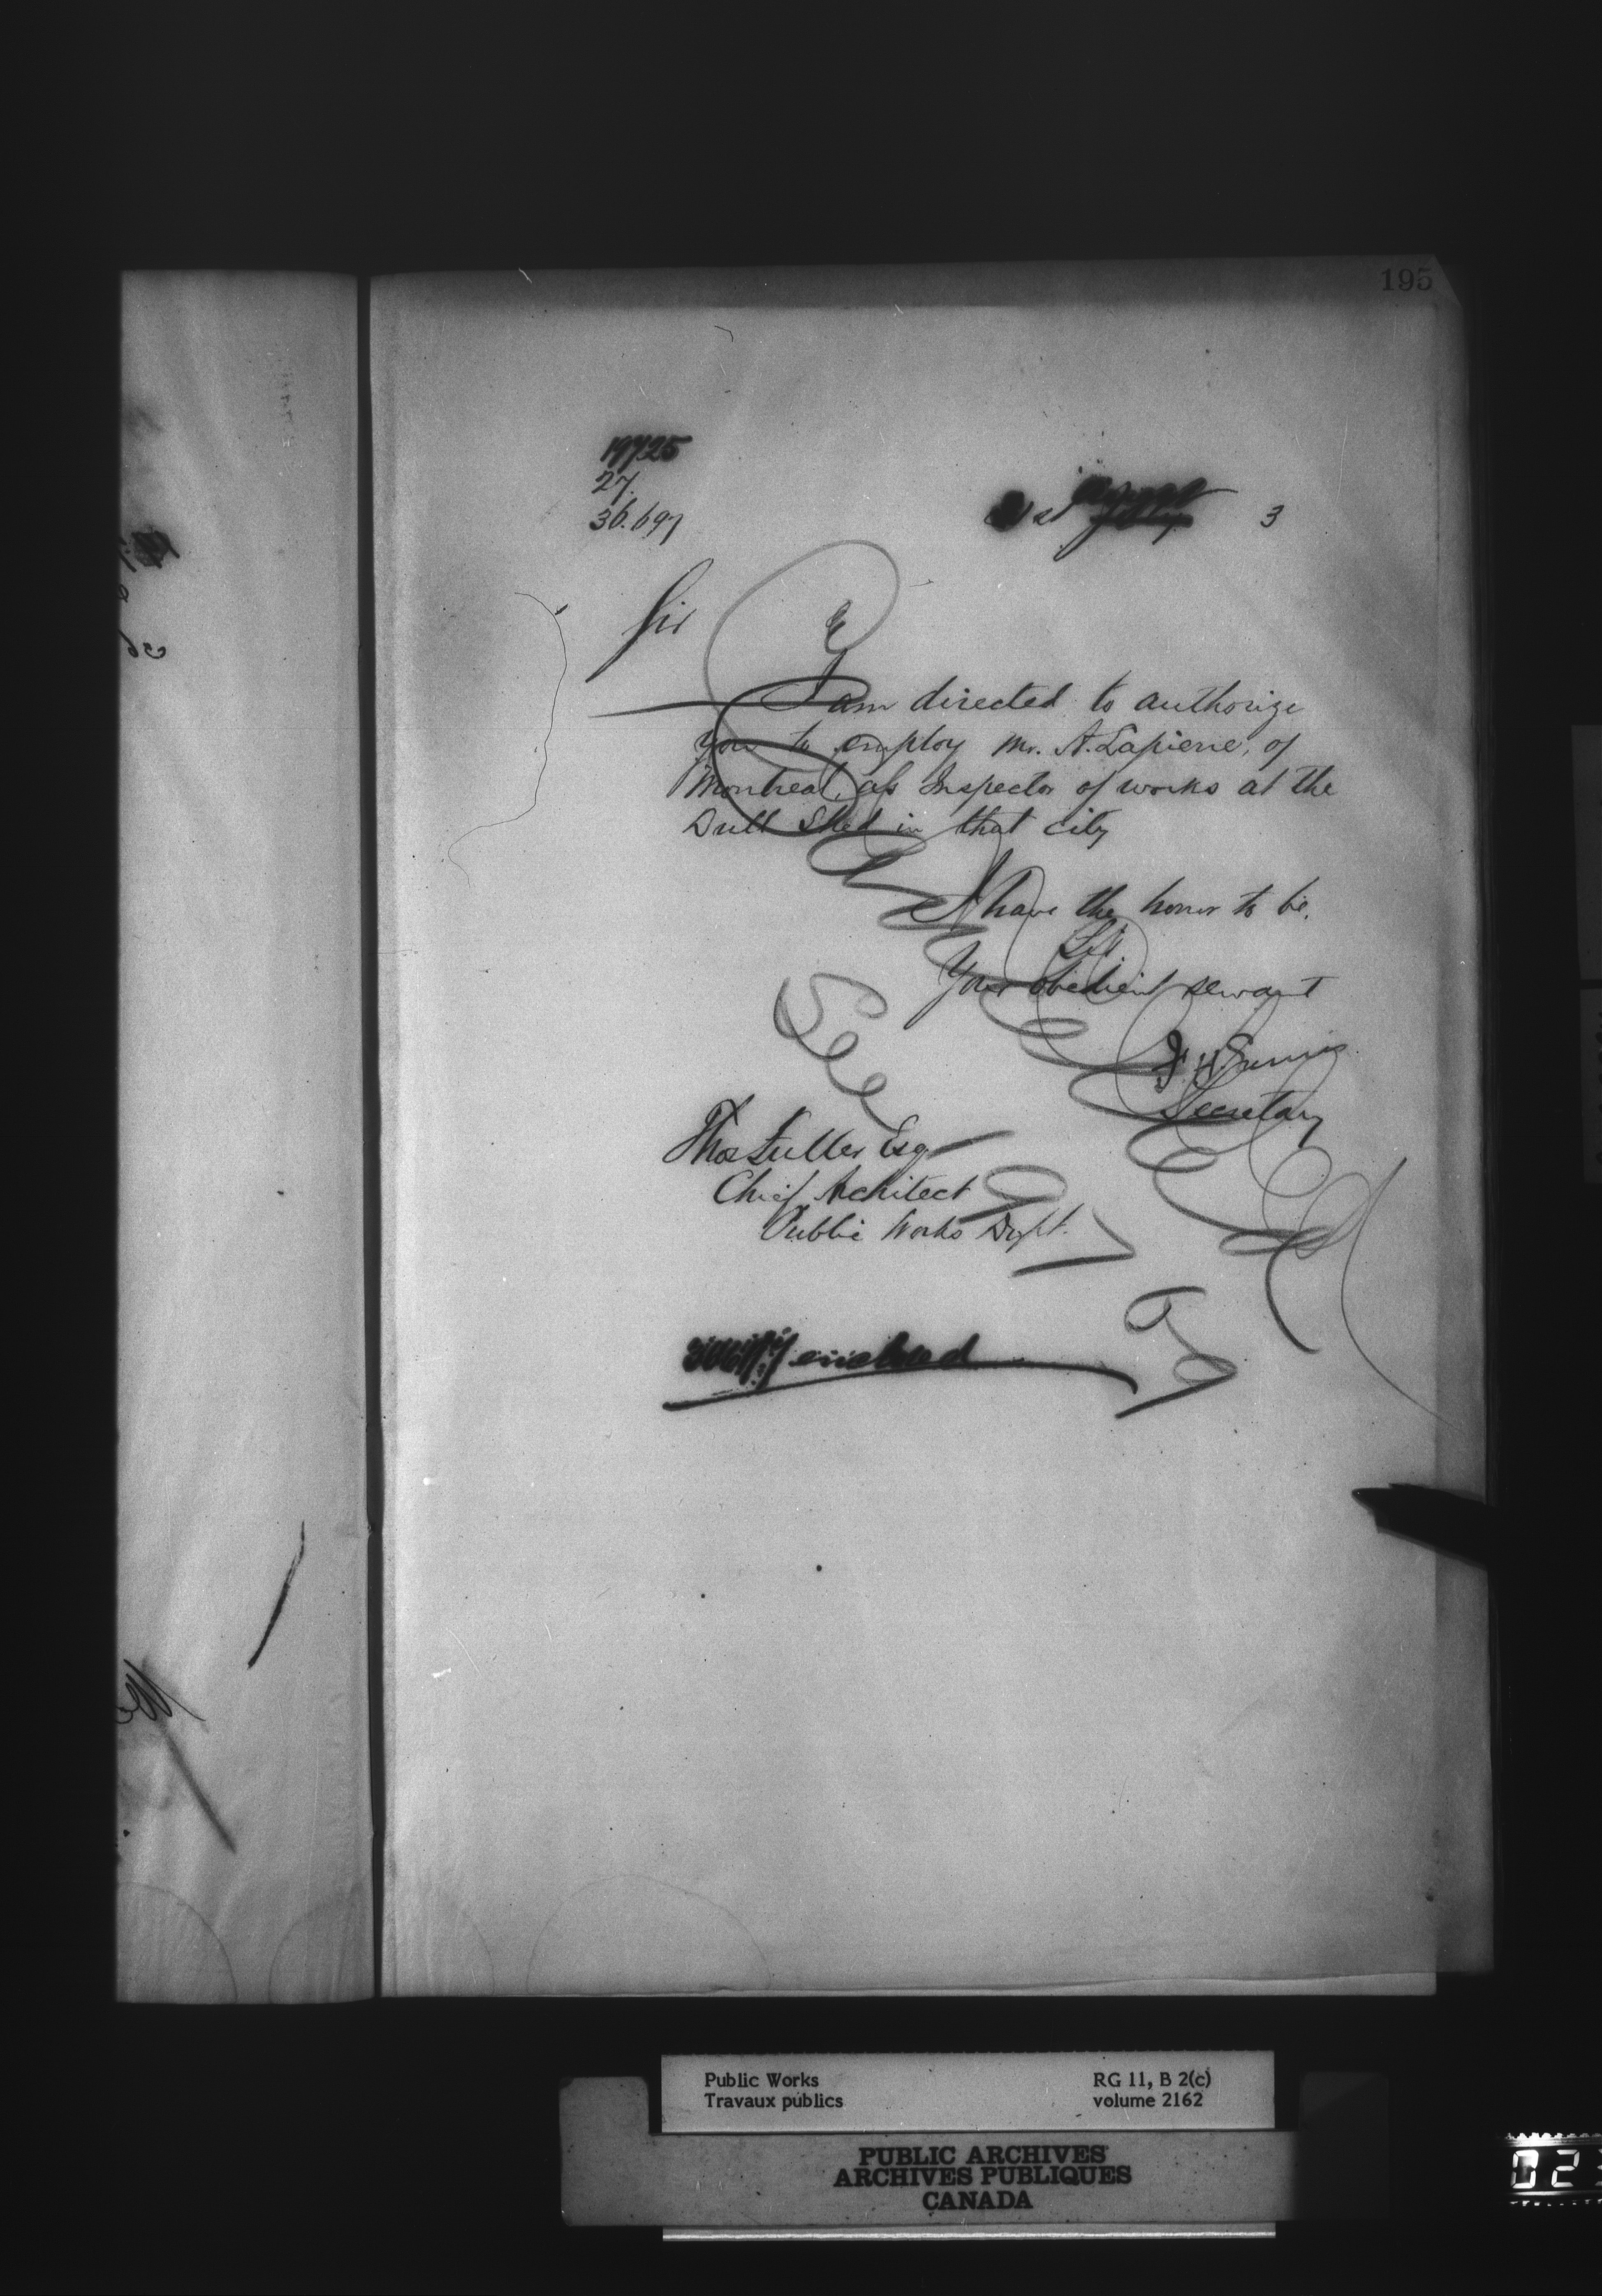 195
19725
27.
36.697
3
Sir
I am directed to authorize
you to employ Mr. A. Lapierre, of
Montreal, as Inspector of works at the
Drill Shed in that city
I have the honor to be,
Sir
Your obedient servant
F. H. Ennis
Secretary
Thos Fuller Esq
Chief Architect
Public Works Dept.
enclosed
Public Works
Travaux publics
RG 11, B 2(c)
volume 2162
PUBLIC ARCHIVES
ARCHIVES PUBLIQUES
CANADA
02